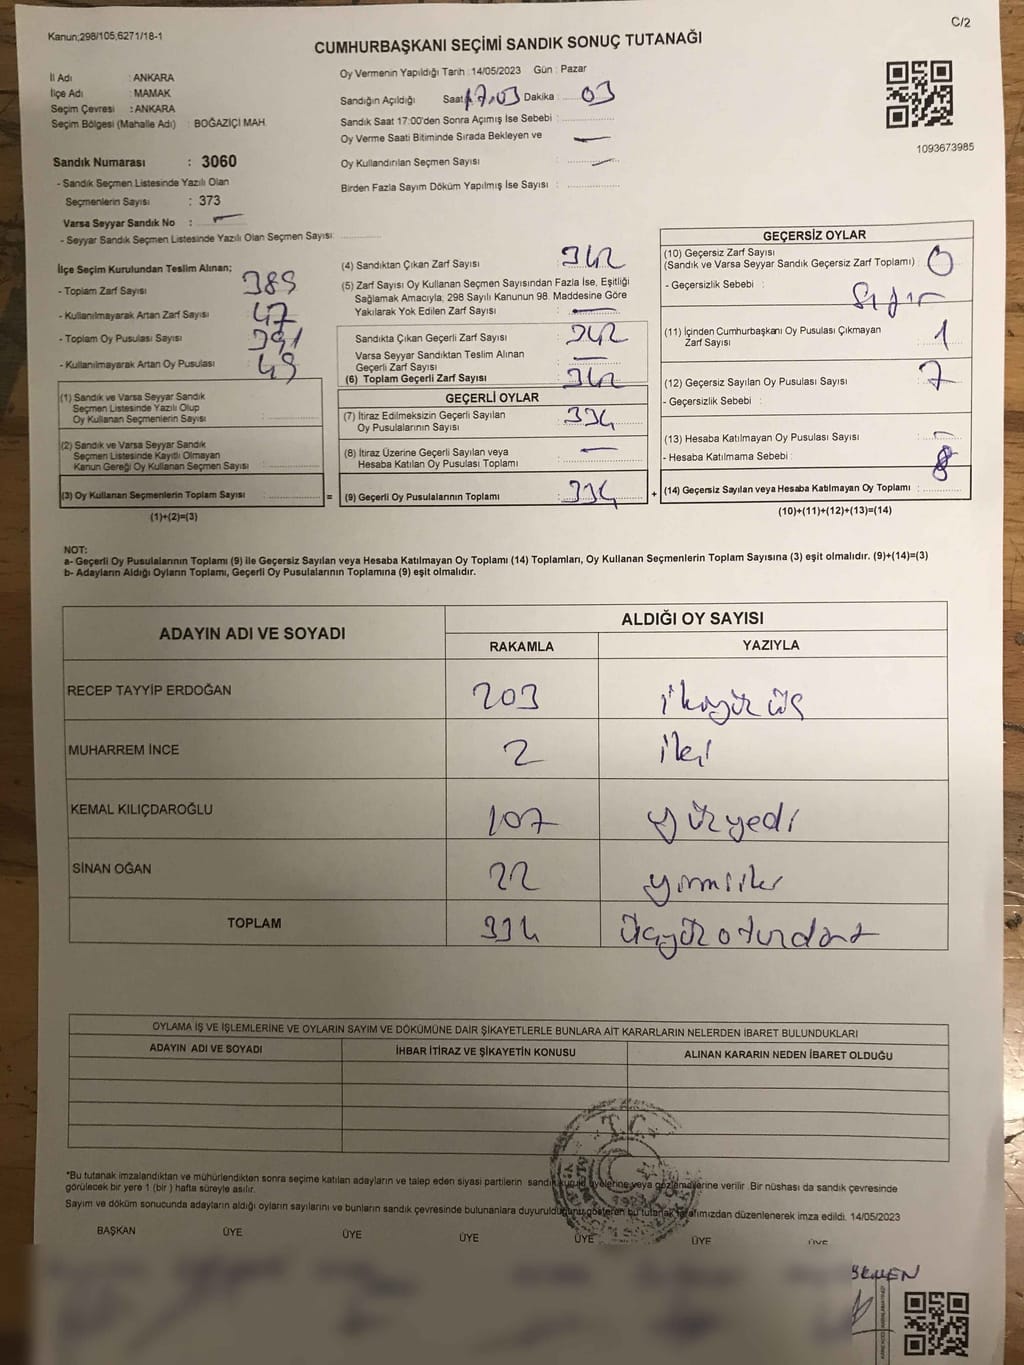 Kanun;298/105,6271/18-1
C/2
CUMHURBAŞKANI SEÇİMİ SANDIK SONUÇ TUTANAĞI
İl Adı : ANKARA
İlçe Adı : MAMAK
Seçim Çevresi : ANKARA
Seçim Bölgesi (Mahalle Adı) : BOĞAZİÇİ MAH.
Sandık Numarası : 3060
- Sandık Seçmen Listesinde Yazılı Olan
Seçmenlerin Sayısı : 373
Varsa Seyyar Sandık No : -
- Seyyar Sandık Seçmen Listesinde Yazılı Olan Seçmen Sayısı:
Oy Vermenin Yapıldığı Tarih : 14/05/2023 Gün : Pazar
Sandığın Açıldığı Saat 17,03 Dakika : 03
Sandık Saat 17:00'den Sonra Açımış İse Sebebi :
Oy Verme Saati Bitiminde Sırada Bekleyen ve
Oy Kullandırılan Seçmen Sayısı : -
Birden Fazla Sayım Döküm Yapılmış İse Sayısı :
1093673985
İlçe Seçim Kurulundan Teslim Alınan;
- Toplam Zarf Sayısı : 389
- Kullanılmayarak Artan Zarf Sayısı : 47
- Toplam Oy Pusulası Sayısı : 391
- Kullanılmayarak Artan Oy Pusulası : 49
(1) Sandık ve Varsa Seyyar Sandık
Seçmen Listesinde Yazılı Olup
Oy Kullanan Seçmenlerin Sayısı :
(2) Sandık ve Varsa Seyyar Sandık
Seçmen Listesinde Kayıtlı Olmayan
Kanun Gereği Oy Kullanan Seçmen Sayısı :
(3) Oy Kullanan Seçmenlerin Toplam Sayısı : =
(1)+(2)=(3)
(4) Sandıktan Çıkan Zarf Sayısı : 342
(5) Zarf Sayısı Oy Kullanan Seçmen Sayısından Fazla İse, Eşitliği
Sağlamak Amacıyla, 298 Sayılı Kanunun 98. Maddesine Göre
Yakılarak Yok Edilen Zarf Sayısı : -
Sandıkta Çıkan Geçerli Zarf Sayısı : 342
Varsa Seyyar Sandıktan Teslim Alınan
Geçerli Zarf Sayısı : -
(6) Toplam Geçerli Zarf Sayısı : 342
GEÇERLİ OYLAR
(7) İtiraz Edilmeksizin Geçerli Sayılan
Oy Pusulalarının Sayısı : 334
(8) İtiraz Üzerine Geçerli Sayılan veya
Hesaba Katılan Oy Pusulası Toplamı : -
(9) Geçerli Oy Pusulalarının Toplamı : 334 +
GEÇERSİZ OYLAR
(10) Geçersiz Zarf Sayısı
(Sandık ve Varsa Seyyar Sandık Geçersiz Zarf Toplamı) : 0
- Geçersizlik Sebebi : Sıfır
(11) İçinden Cumhurbaşkanı Oy Pusulası Çıkmayan
Zarf Sayısı : 1
(12) Geçersiz Sayılan Oy Pusulası Sayısı : 7
- Geçersizlik Sebebi :
(13) Hesaba Katılmayan Oy Pusulası Sayısı : -
- Hesaba Katılmama Sebebi :
(14) Geçersiz Sayılan veya Hesaba Katılmayan Oy Toplamı : 8
(10)+(11)+(12)+(13)=(14)
NOT:
a- Geçerli Oy Pusulalarının Toplamı (9) ile Geçersiz Sayılan veya Hesaba Katılmayan Oy Toplamı (14) Toplamları, Oy Kullanan Seçmenlerin Toplam Sayısına (3) eşit olmalıdır. (9)+(14)=(3)
b- Adayların Aldığı Oyların Toplamı, Geçerli Oy Pusulalarının Toplamına (9) eşit olmalıdır.
ADAYIN ADI VE SOYADI
ALDIĞI OY SAYISI
RAKAMLA YAZIYLA
RECEP TAYYİP ERDOĞAN 203 ikiyüz üç
MUHARREM İNCE 2 iki
KEMAL KILIÇDAROĞLU 107 yüzyedi
SİNAN OĞAN 22 yirmiiki
TOPLAM 334 üçyüzotuzdört
OYLAMA İŞ VE İŞLEMLERİNE VE OYLARIN SAYIM VE DÖKÜMÜNE DAİR ŞİKAYETLERLE BUNLARA AİT KARARLARIN NELERDEN İBARET BULUNDUKLARI
ADAYIN ADI VE SOYADI İHBAR İTİRAZ VE ŞİKAYETİN KONUSU ALINAN KARARIN NEDEN İBARET OLDUĞU
T.C.
*Bu tutanak imzalandıktan ve mühürlendikten sonra seçime katılan adayların ve talep eden siyasi partilerin sandık kurulu üyelerine veya gözlemcilerine verilir. Bir nüshası da sandık çevresinde
görülecek bir yere 1 (bir ) hafta süreyle asılır.
Sayım ve döküm sonucunda adayların aldığı oyların sayılarını ve bunların sandık çevresinde bulunanlara duyurulduğunu gösteren bu tutanak tarafımızdan düzenlenerek imza edildi. 14/05/2023
BAŞKAN ÜYE ÜYE ÜYE ÜYE ÜYE ÜYE